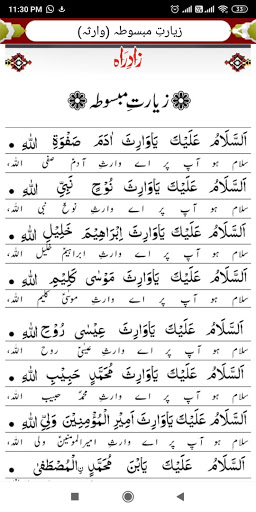 11:30 PM
33
زیارتِ مبسوطہ (وارثہ)
زادِراہ
زیارتِ مبسوطہ
اَلسَّلَامُ عَلَیْكَ یَاوَارِثَ اٰدَمَ صَفْوَةِ اللهِ •
سلام ہو آپ پر اے وارثِ آدمؑ صفی اللہ،
اَلسَّلَامُ عَلَیْكَ یَاوَارِثَ نُوْحٍ نَبِیِّ اللهِ •
سلام ہو آپ پر اے وارثِ نوحؑ نبی اللہ،
اَلسَّلَامُ عَلَیْكَ یَاوَارِثَ اِبْرَاهِیْمَ خَلِیْلِ اللهِ •
سلام ہو آپ پر اے وارثِ ابراہیمؑ خلیل اللہ،
اَلسَّلَامُ عَلَیْكَ یَاوَارِثَ مُوْسٰی كَلِیْمِ اللهِ •
سلام ہو آپ پر اے وارثِ موسیٰؑ کلیم اللہ،
اَلسَّلَامُ عَلَیْكَ یَاوَارِثَ عِیْسٰی رُوْحِ اللهِ •
سلام ہو آپ پر اے وارثِ عیسیٰؑ روح اللہ،
اَلسَّلَامُ عَلَیْكَ یَاوَارِثَ مُحَمَّدٍ حَبِیْبِ اللهِ •
سلام ہو آپ پر اے وارثِ محمدؐ حبیب اللہ،
اَلسَّلَامُ عَلَیْكَ یَاوَارِثَ اَمِیْرِ الْمُؤْمِنِیْنَ وَلِیِّ اللهِ •
سلام ہو آپ پر اے وارثِ امیرالمومنینؑ ولی اللہ،
اَلسَّلَامُ عَلَیْكَ یَابْنَ مُحَمَّدٍ ࣙالْمُصْطَفٰی •